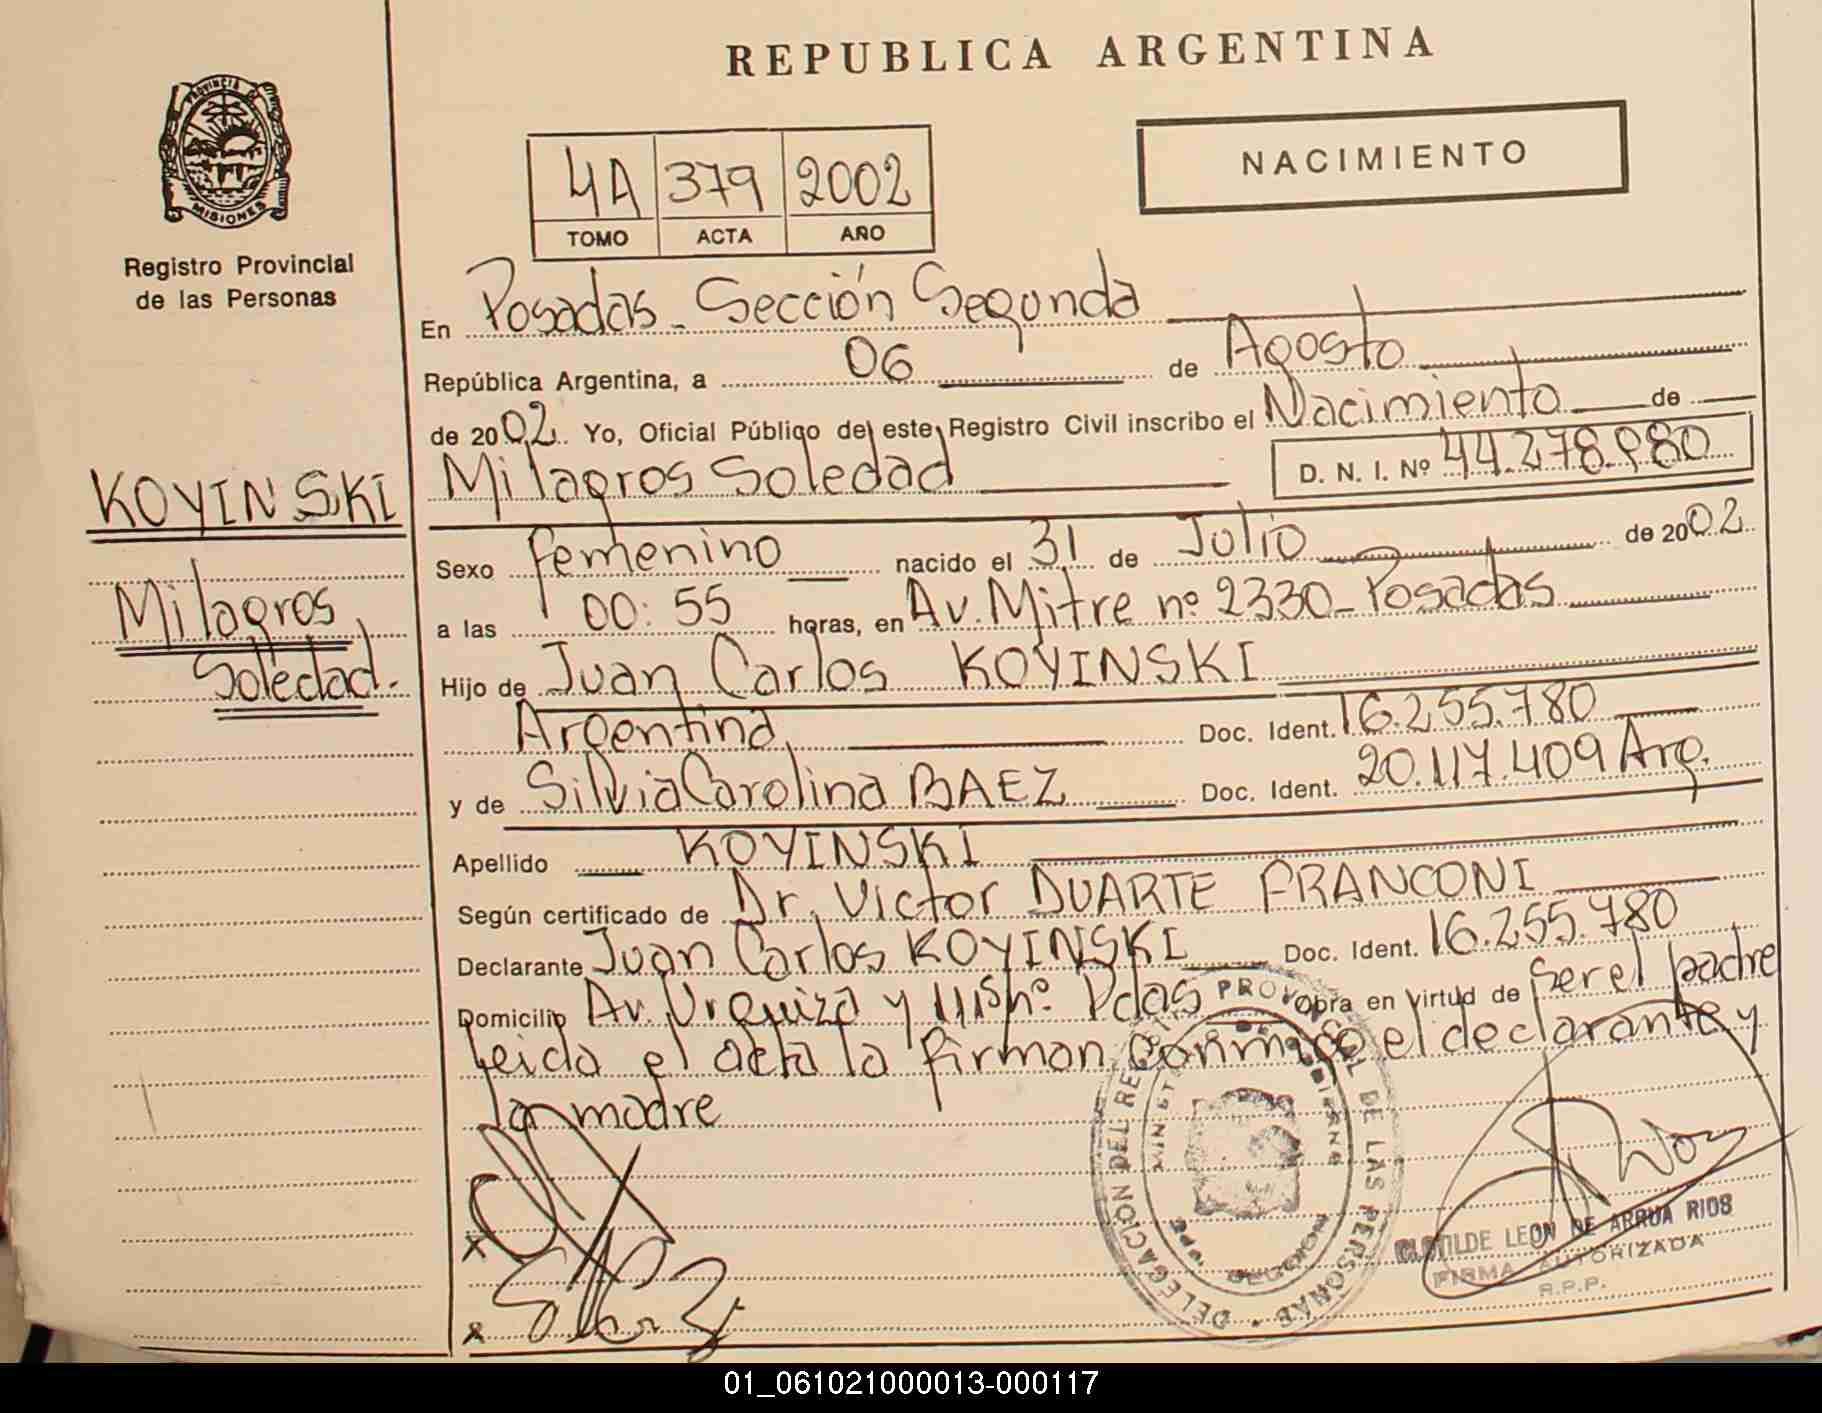 REPUBLICA ARGENTINA
PROVINCIA DE
MISIONES
Registro Provincial
de las Personas
4A 379 2002
TOMO ACTA AÑO
NACIMIENTO
En Posadas - Sección Segunda
República Argentina, a 06 de Agosto
de 2002. Yo, Oficial Público de este Registro Civil inscribo el Nacimiento de
Milagros Soledad D. N. I. Nº 44.278.980
KOYINSKI
Milagros
Soledad.
Sexo femenino nacido el 31 de Julio de 2002
a las 00:55 horas, en Av. Mitre nº 2330 - Posadas
Hijo de Juan Carlos KOYINSKI
Argentina Doc. Ident. 16.255.780
y de Silvia Carolina BAEZ Doc. Ident. 20.117.409 Arg.
Apellido KOYINSKI
Según certificado de Dr. Victor DUARTE FRANCONI
Declarante Juan Carlos KOYINSKI Doc. Ident. 16.255.780
Domicilio Av. Urquiza y Pdas Obra en virtud de Ser el padre
Leida el acta la firman conmigo el declarante y
la madre
DELEGACIÓN DEL REG. PROVINCIAL DE LAS PERSONAS
x
x
CLOTILDE LEON DE ARRUA RIOS
FIRMA AUTORIZADA
R.P.P.
01_061021000013-000117